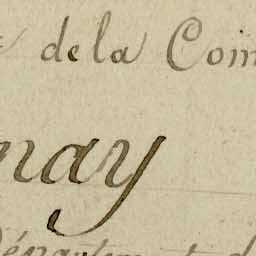 de la Com
nay
Département d